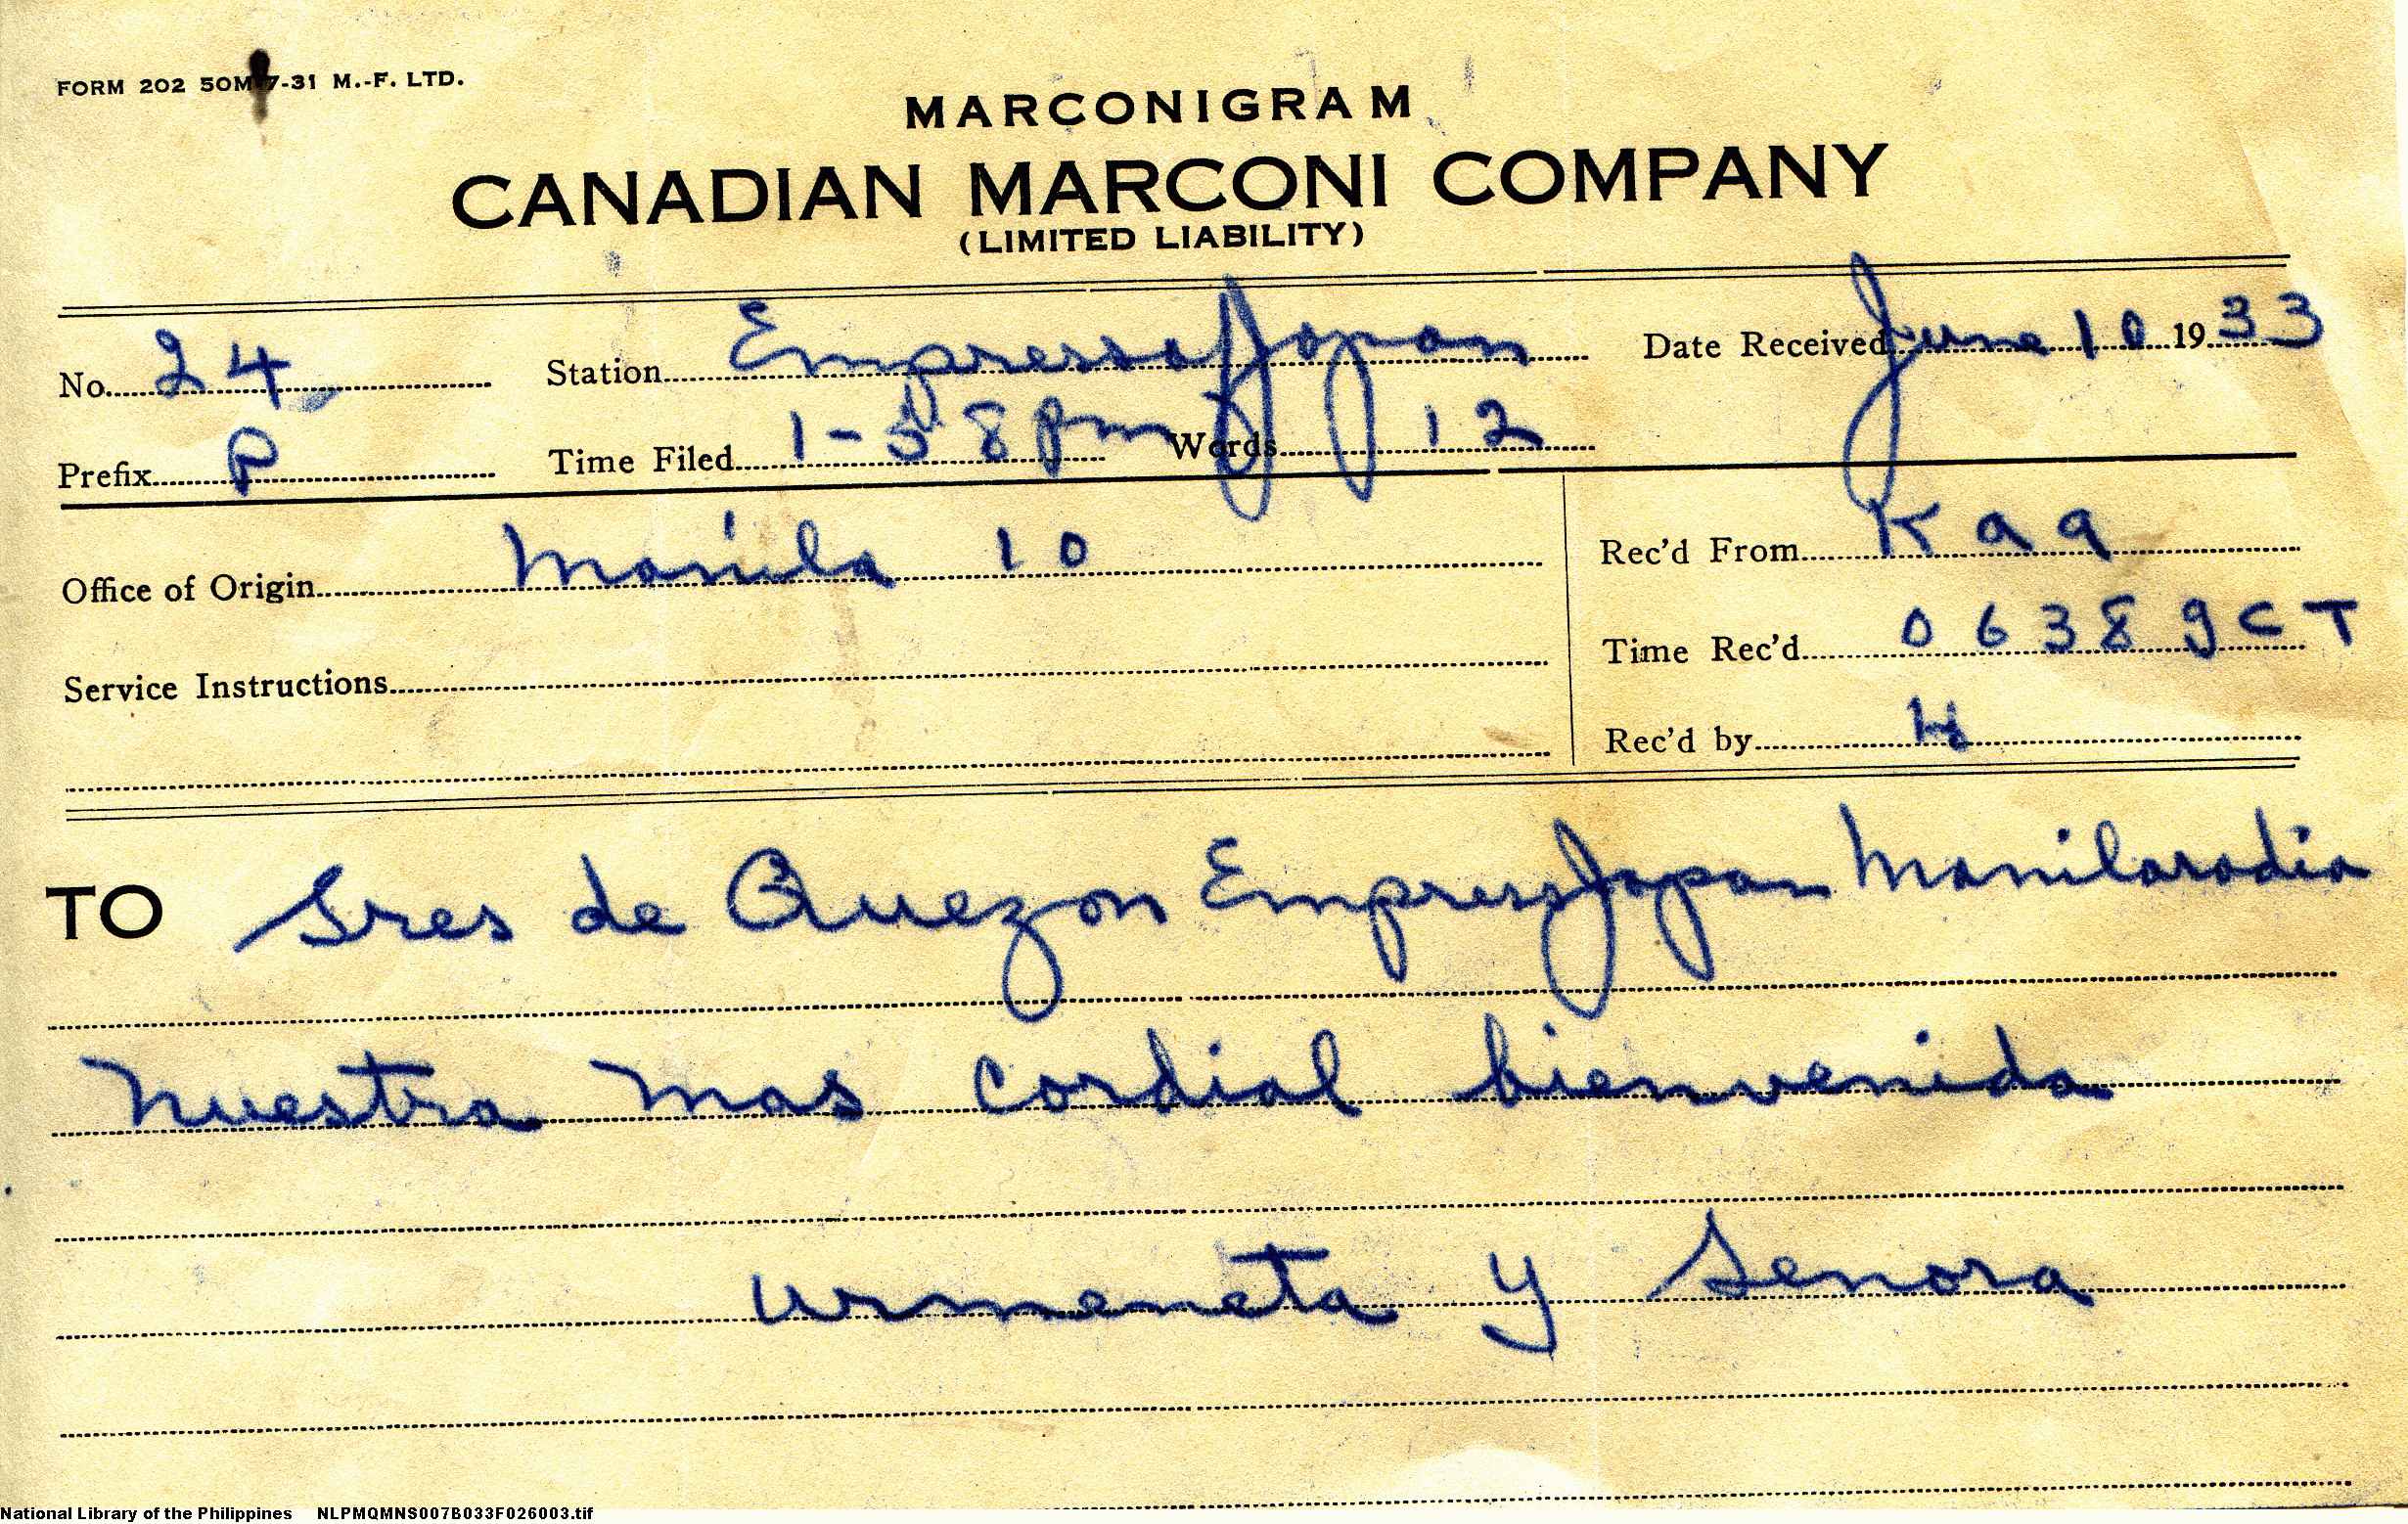 FORM 202 50M-7-31 M.-F. LTD.
MARCONIGRAM
CANADIAN MARCONI COMPANY
(LIMITED LIABILITY)
No. 24 Station Empress of Japan Date Received June 10 1933
Prefix P Time Filed 1-58 pm Words 12
Office of Origin Manila 10 Rec'd From Kaq
Service Instructions Time Rec'd 0638 gCT
Rec'd by
TO Sres de Quezon EmpressJapan Manilaradio
Nuestra mas cordial bienvenida
Urmeneta y Senora
National Library of the Philippines NLPMQMNS007B033F026003.tif